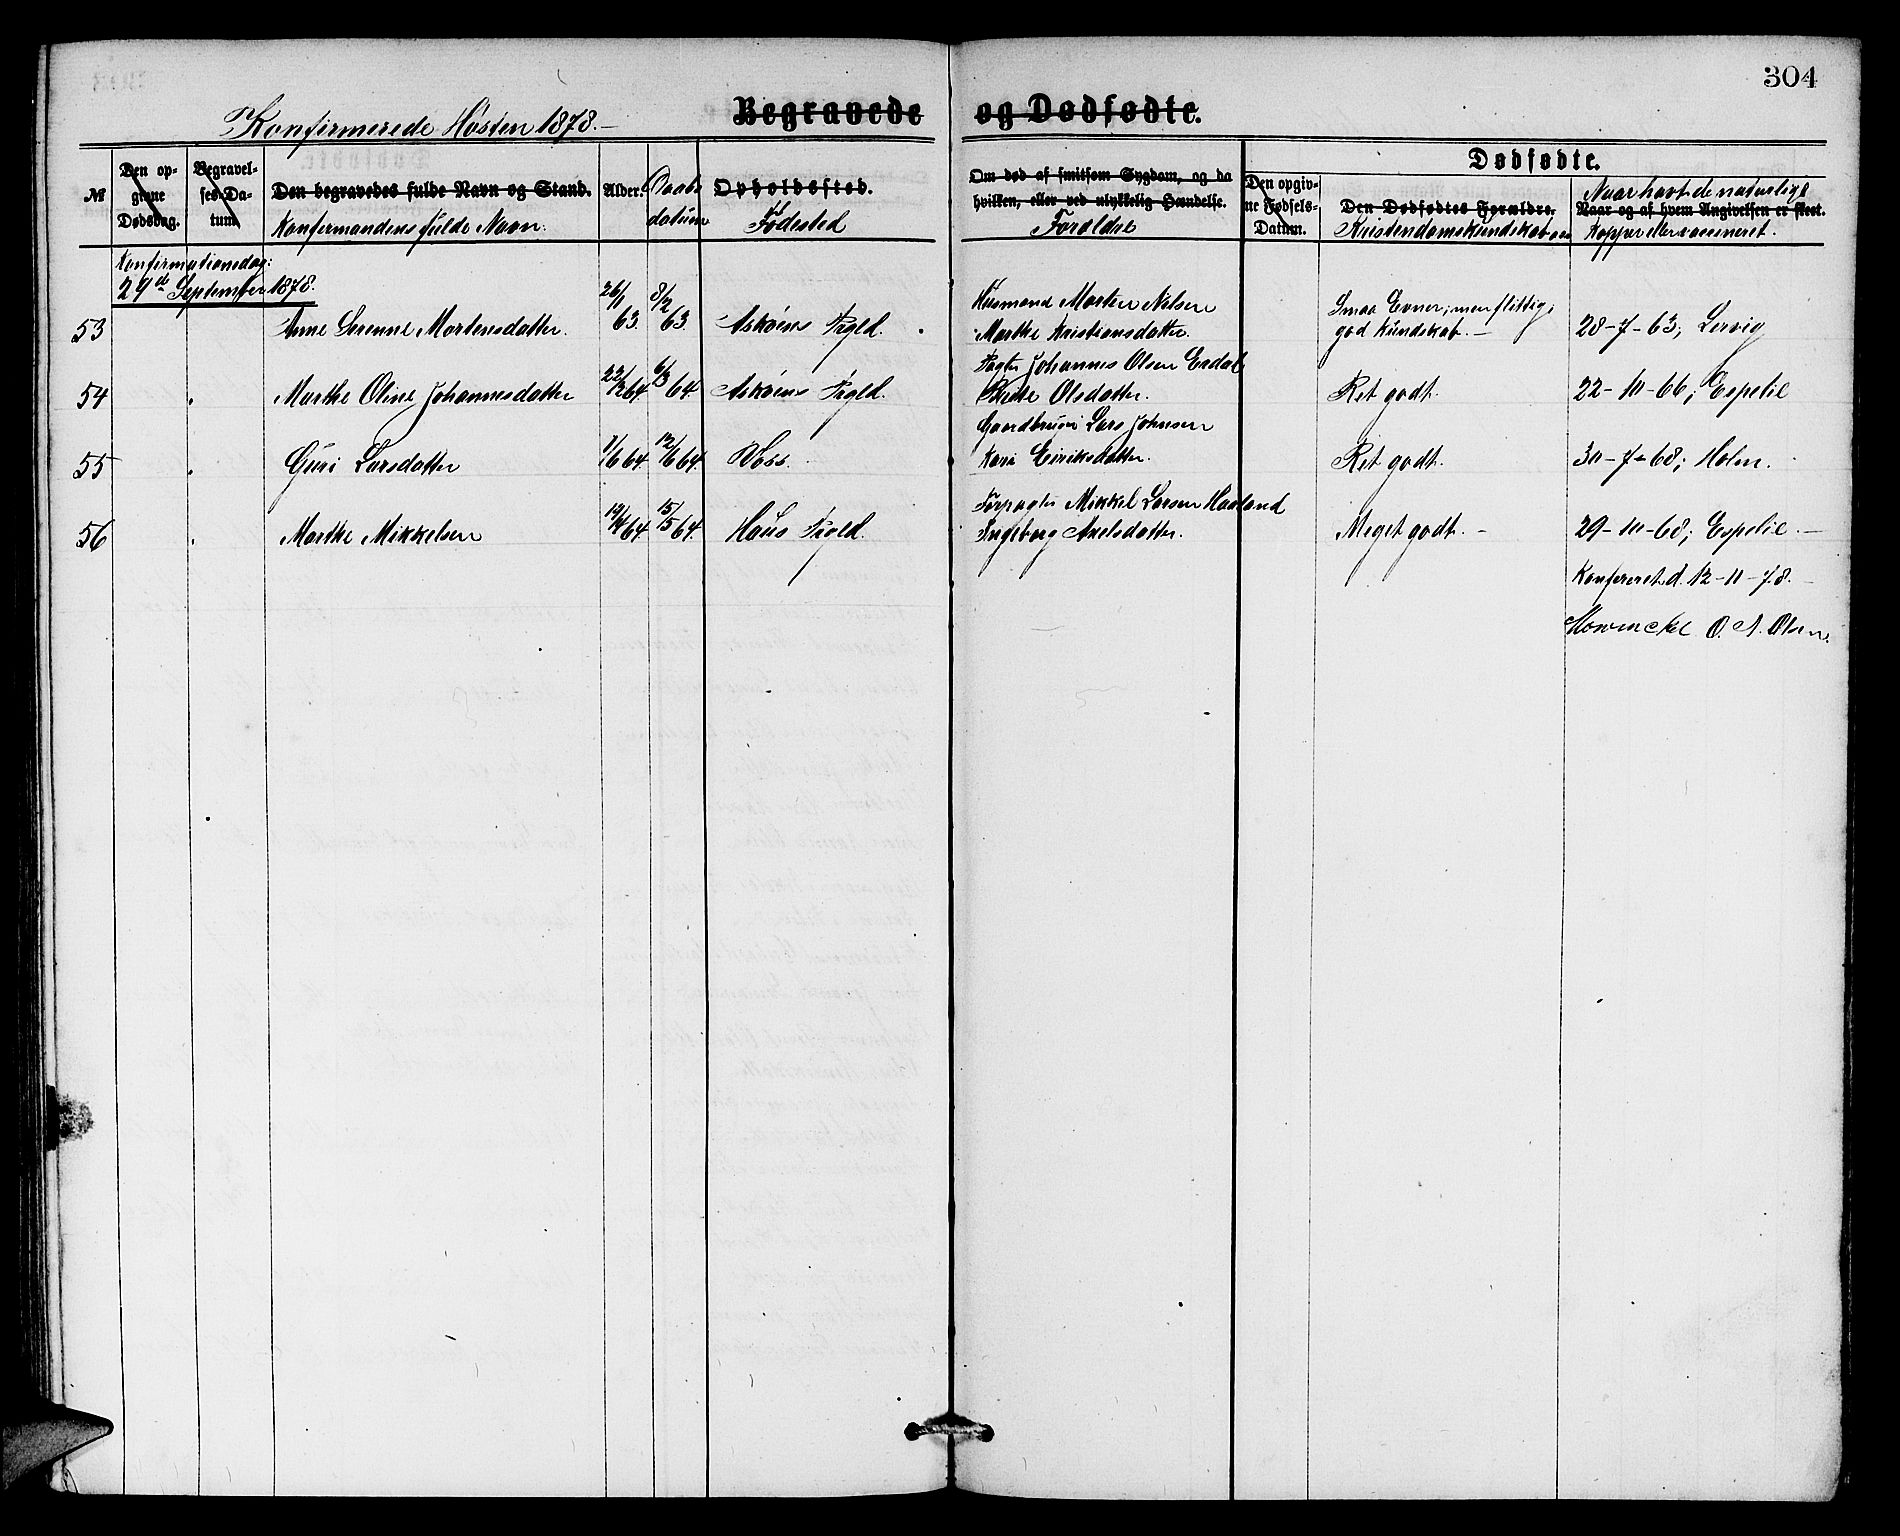 304
Konfirmerede Høsten 1878.
Begravede og Dødfødte.
№
Den opgivne Dødsdag.
Begravelses-Datum.
Den begravedes fulde Navn og Stand.
Konfirmandens fulde Navn.
Alder.
Daabsdatum
Opholdssted.
Fødested
Om død af smitsom Sygdom, og da
hvilken, eller ved ulykkelig Hændelse.
Forældre
Dødfødte.
Den opgivne Fødsels-Datum.
Den Dødfødtes Forældre.
Kristendomskundskab
Naar havt de naturlige
Naar og af hvem Angivelsen er skeet.
Kopper eller vaccineret.
Konfirmationsdag:
29de September 1878.
53 Anne Serenne Mortensdatter. 26/1 63. 8/2 63. Askøens Prgld. Husmand Morten Nilsen
Marthe Kristiansdatter. Smaa Evner; men flittig;
god Kundskab. – 28-7-63; Lervig
54 Marthe Oline Johannesdatter 22/2 64 6/3 64. Askøens Prgld. Pagter Johannes Olsen Erdal
Brite Olsdatter. Ret godt. 22-10-66; Espelie
55 Guri Larsdatter 1/6 64. 12/6 64. Voss. Gaardbruger Lars Johnsen
Kari Eiriksdatter. Ret godt. 30-7-68; Holm.
56 Marthe Mikkelsen 19/4 64. 15/5 64. Haus Prgld. Forpagter Mikkel Larsen Haaland
Ingeborg Axelsdatter. Meget godt. – 29-10-68; Espelie. –
Konfereret d. 12-11-78. –
O. A. Olsen.